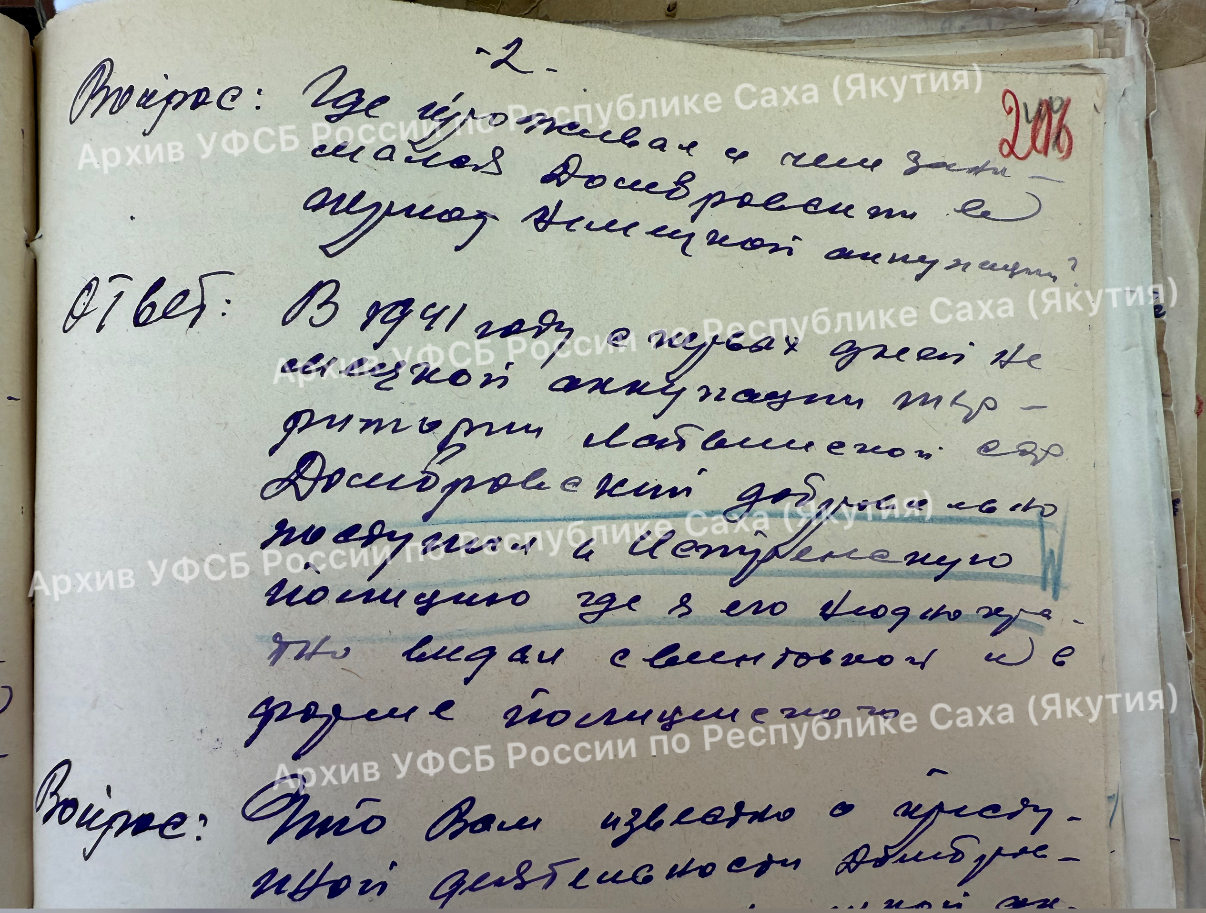 -2.
206
Вопрос: Где проживал и чем зани-
мался Домбровский в
период немецкой аккупации?
Ответ: В 1941 году с первых дней не
мецкой аккупации тер-
ритории Латвийской ССР
Домбровский добровольно
поступил в Истребенскую
полицию где я его неоднокра-
тно видел с винтовкой и в
форме полицейского
Вопрос: Что Вам известно о престу-
пной деятельности Домбров-
Архив УФСБ России по Республике Саха (Якутия)
Архив УФСБ России по Республике Саха (Якутия)
Архив УФСБ России по Республике Саха (Якутия)
Архив УФСБ России по Республике Саха (Якутия)